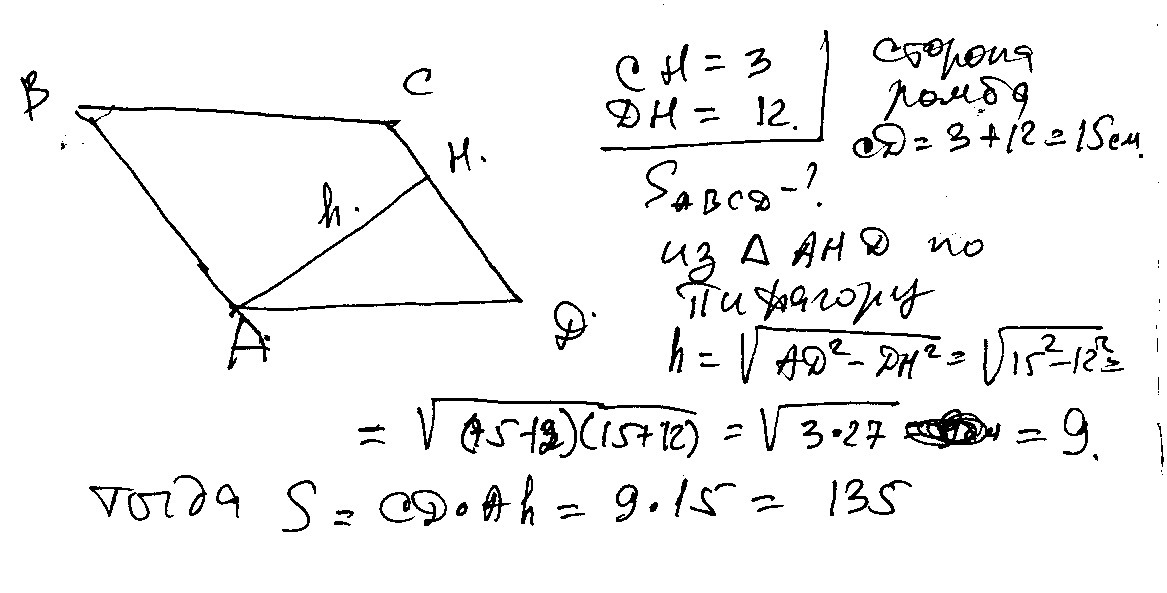 B
C
H.
h.
A
D.
CH = 3
DH = 12.
SABCD - ?
сторона
ромба
CD = 3 + 12 = 15 см.
из Δ AHD по
Пифагору
h = √(AD² - DH²) = √(15² - 12²) =
= √((15-12)(15+12)) = √(3·27) = 9.
тогда S = CD · Ah = 9 · 15 = 135